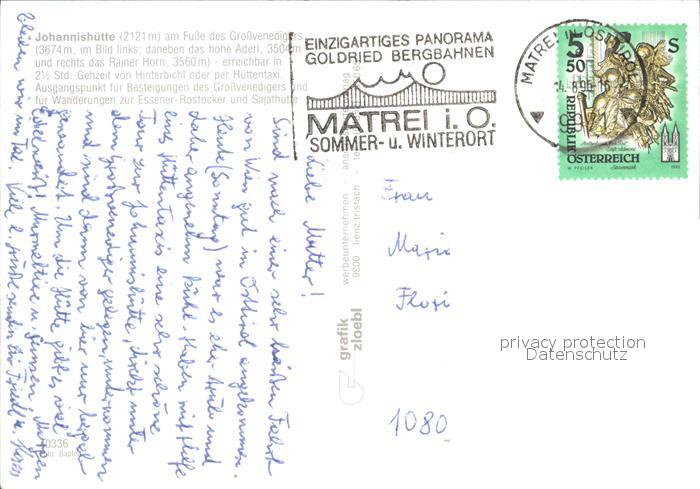 Johannishütte (2121 m) am Fuße des Großvenedigers
(3674 m, im Bild links; daneben das hohe Aderl, 3504 m
und rechts das Rainer Horn, 3560 m) - erreichbar in
2½ Std. Gehzeit von Hinterbichl oder per Hüttentaxi.
Ausgangspunkt für Besteigungen des Großvenedigers und
für Wanderungen zur Essener-Rostocker und Sajathütte
EINZIGARTIGES PANORAMA
GOLDRIED BERGBAHNEN
MATREI i. O.
SOMMER- u. WINTERORT
MATREI IN OSTTIROL
5 S
50
REPUBLIK
ÖSTERREICH
Liebe Mutter!
Sind nach einer sehr heißen Fahrt
von Wien gut in Osttirol angekommen.
Heute (Sonntag) war es eher trüb und
daher angenehm kühl. Haben mit Hilfe
eines Hüttentaxis eine sehr schöne
Tour zur Johannishütte, direkt unter
dem Großvenediger gelegen, unternommen
und sind dann von hier nur bergab
gewandert. Um die Hütte gibt es viel
Edelweiß! Murmeltiere u. Gemsen! Morgen
bleiben wir im Tal. Viele l. Grüße senden Dir
werbeunternehmen - ansichtskartenverlag
9900 lienz/tristach
grafik
zloebl
Frau
Maria
Flori
1080
privacy protection
Datenschutz
10336